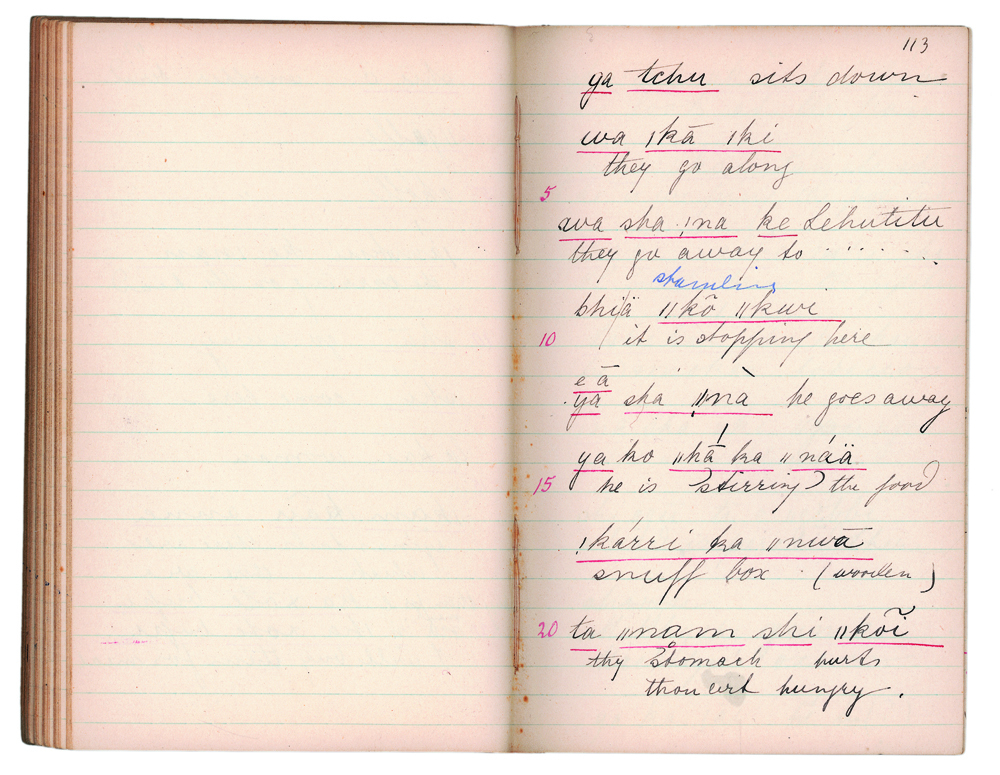 113
ya tchu sits down
wa ǀkā ǀki
they go along
5
wa sha ǃna ke Lehutitu
they go away to . . . . . . .
standing
bhiä ǁkō ǁkwe
10 it is stopping here
e ā
ya sha ǁnà he goes away
ya ko ǁkā́ ka ǁnáä
15 he is (stirring) the food
ǃkárri ka ǁnwā
snuff box (wooden)
20 ta ǁnam shi ǁkõī
thy stomach hurts
thou art hungry .